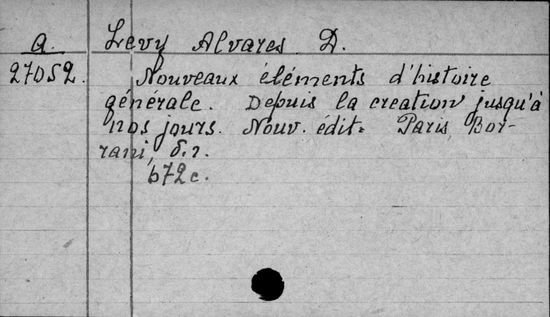 A. Levy Alvares D.
27052. Nouveaux éléments d'histoire
générale. Depuis la creation jusqu'à
nos jours. Nouv. édit. Paris, Bor-
rani, s.
672 c.